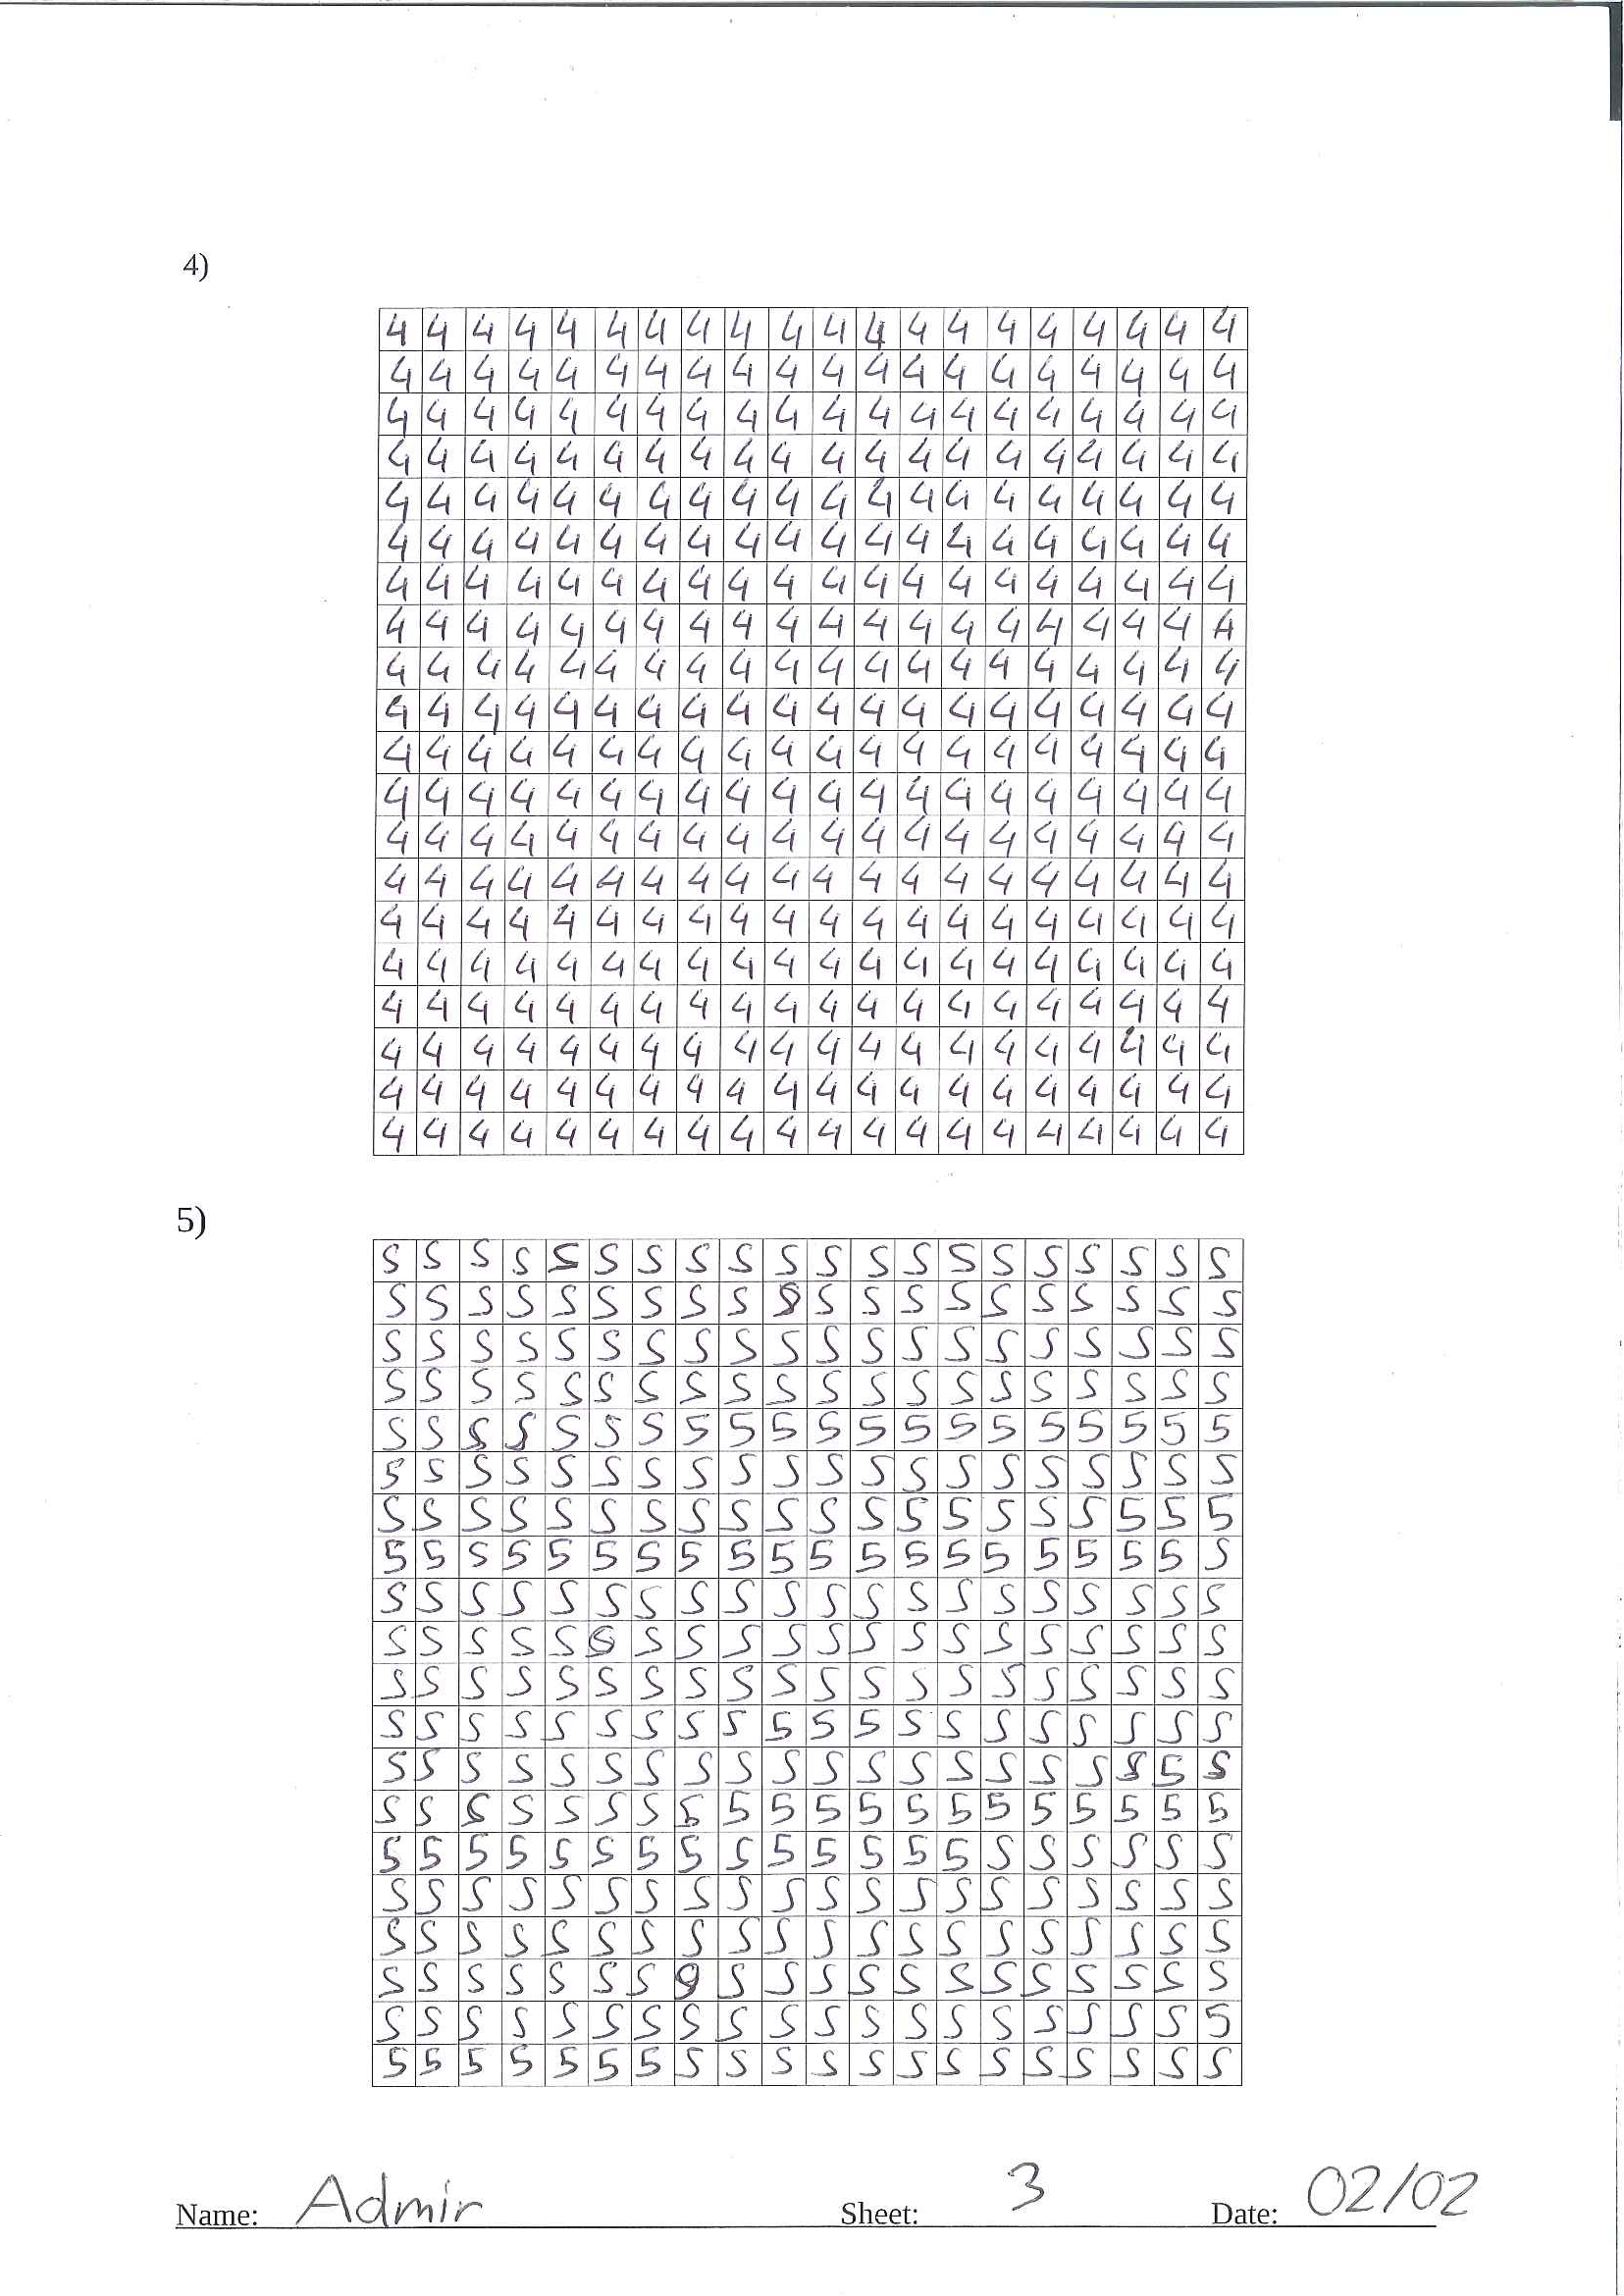 4)
4 4 4 4 4 4 4 4 4 4 4 4 4 4 4 4 4 4 4 4
4 4 4 4 4 4 4 4 4 4 4 4 4 4 4 4 4 4 4 4
4 4 4 4 4 4 4 4 4 4 4 4 4 4 4 4 4 4 4 4
4 4 4 4 4 4 4 4 4 4 4 4 4 4 4 4 4 4 4 4
4 4 4 4 4 4 4 4 4 4 4 4 4 4 4 4 4 4 4 4
4 4 4 4 4 4 4 4 4 4 4 4 4 4 4 4 4 4 4 4
4 4 4 4 4 4 4 4 4 4 4 4 4 4 4 4 4 4 4 4
4 4 4 4 4 4 4 4 4 4 4 4 4 4 4 4 4 4 4 4
4 4 4 4 4 4 4 4 4 4 4 4 4 4 4 4 4 4 4 4
4 4 4 4 4 4 4 4 4 4 4 4 4 4 4 4 4 4 4 4
4 4 4 4 4 4 4 4 4 4 4 4 4 4 4 4 4 4 4 4
4 4 4 4 4 4 4 4 4 4 4 4 4 4 4 4 4 4 4 4
4 4 4 4 4 4 4 4 4 4 4 4 4 4 4 4 4 4 4 4
4 4 4 4 4 4 4 4 4 4 4 4 4 4 4 4 4 4 4 4
4 4 4 4 4 4 4 4 4 4 4 4 4 4 4 4 4 4 4 4
4 4 4 4 4 4 4 4 4 4 4 4 4 4 4 4 4 4 4 4
4 4 4 4 4 4 4 4 4 4 4 4 4 4 4 4 4 4 4 4
4 4 4 4 4 4 4 4 4 4 4 4 4 4 4 4 4 4 4 4
4 4 4 4 4 4 4 4 4 4 4 4 4 4 4 4 4 4 4 4
4 4 4 4 4 4 4 4 4 4 4 4 4 4 4 4 4 4 4 4
5)
5 5 5 5 5 5 5 5 5 5 5 5 5 5 5 5 5 5 5 5
5 5 5 5 5 5 5 5 5 5 5 5 5 5 5 5 5 5 5
5 5 5 5 5 5 5 5 5 5 5 5 5 5 5 5 5 5 5 5
5 5 5 5 5 5 5 5 5 5 5 5 5 5 5 5 5 5 5 5
5 5 5 5 5 5 5 5 5 5 5 5 5 5 5 5 5 5 5 5
5 5 5 5 5 5 5 5 5 5 5 5 5 5 5 5 5 5 5 5
5 5 5 5 5 5 5 5 5 5 5 5 5 5 5 5 5 5 5 5
5 5 5 5 5 5 5 5 5 5 5 5 5 5 5 5 5 5 5 5
5 5 5 5 5 5 5 5 5 5 5 5 5 5 5 5 5 5 5 5
5 5 5 5 5 5 5 5 5 5 5 5 5 5 5 5 5 5 5
5 5 5 5 5 5 5 5 5 5 5 5 5 5 5 5 5 5 5 5
5 5 5 5 5 5 5 5 5 5 5 5 5 5 5 5 5 5 5 5
5 5 5 5 5 5 5 5 5 5 5 5 5 5 5 5 5 5 5 5
5 5 5 5 5 5 5 5 5 5 5 5 5 5 5 5 5 5 5 5
5 5 5 5 5 5 5 5 5 5 5 5 5 5 5 5 5 5 5 5
5 5 5 5 5 5 5 5 5 5 5 5 5 5 5 5 5 5 5 5
5 5 5 5 5 5 5 5 5 5 5 5 5 5 5 5 5 5 5 5
5 5 5 5 5 5 5 9 5 5 5 5 5 5 5 5 5 5 5 5
5 5 5 5 5 5 5 5 5 5 5 5 5 5 5 5 5 5 5 5
5 5 5 5 5 5 5 5 5 5 5 5 5 5 5 5 5 5 5 5
Name: Admir Sheet: 3 Date: 02/02